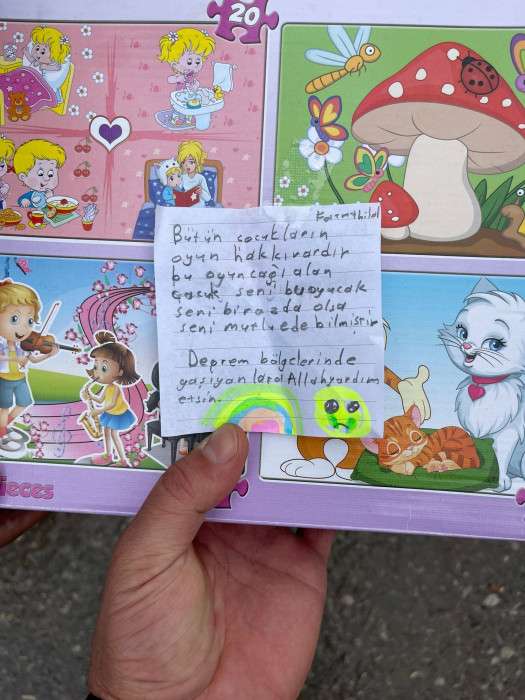 20
Bütün çocukların
oyun hakkı vardır
bu oyuncağı alan
çocuk seni
seni biraz da olsa
seni mutlu edebilmiştir
Deprem bölgelerinde
yaşıyanlara Allah yardım
etsin.
ieces